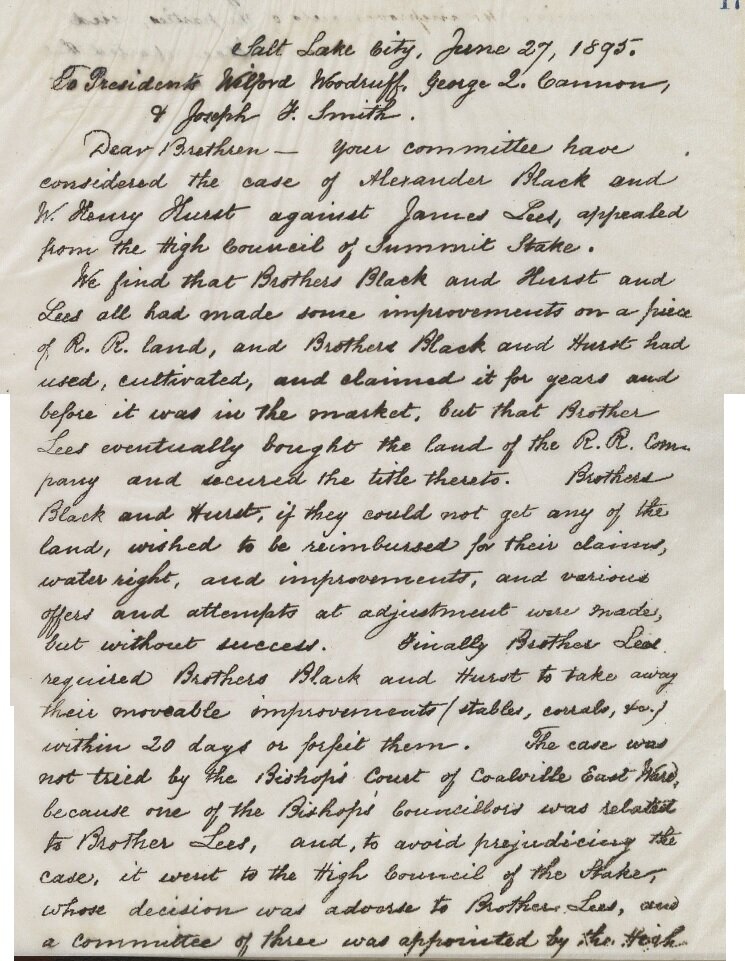 17
Salt Lake City, June 27, 1895.
To Presidents Wilford Woodruff, George Q. Cannon,
& Joseph F. Smith.
Dear Brethren — Your committee have
considered the case of Alexander Black and
W. Henry Hurst against James Lees, appealed
from the High Council of Summit Stake.
We find that Brothers Black and Hurst and
Lees all had made some improvements on a piece
of R. R. land, and Brothers Black and Hurst had
used, cultivated, and claimed it for years and
before it was in the market, but that Brother
Lees eventually bought the land of the R. R. Com-
pany and secured the title thereto. Brothers
Black and Hurst, if they could not get any of the
land, wished to be reimbursed for their claims,
water right, and improvements, and various
offers and attempts at adjustment were made,
but without success. Finally Brother Lees
required Brothers Black and Hurst to take away
their moveable improvements (stables, corrals, &c.)
within 20 days or forfeit them. The case was
not tried by the Bishop's Court of Coalville East Ward,
because one of the Bishop's Councillors was related
to Brother Lees, and, to avoid prejudicing the
case, it went to the High Council of the Stake,
whose decision was adverse to Brother Lees, and
a committee of three was appointed by the High